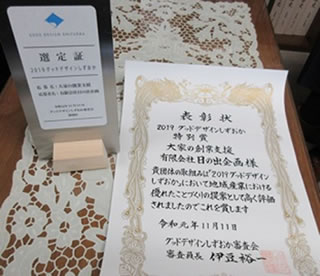 GOOD DESIGN SHIZUOKA
選定証
2019グッドデザインしずおか
表彰状
2019 グッドデザインしずおか
特別賞
大家の創業支援
有限会社日の出企画様
貴団体の取組みは"2019グッドデザイン
しずおか"において地域産業における
優れたことづくりの提案として高く評価
されましたのでこれを賞します
令和元年11月11日
グッドデザインしずおか審査会
審査員長 伊豆裕一